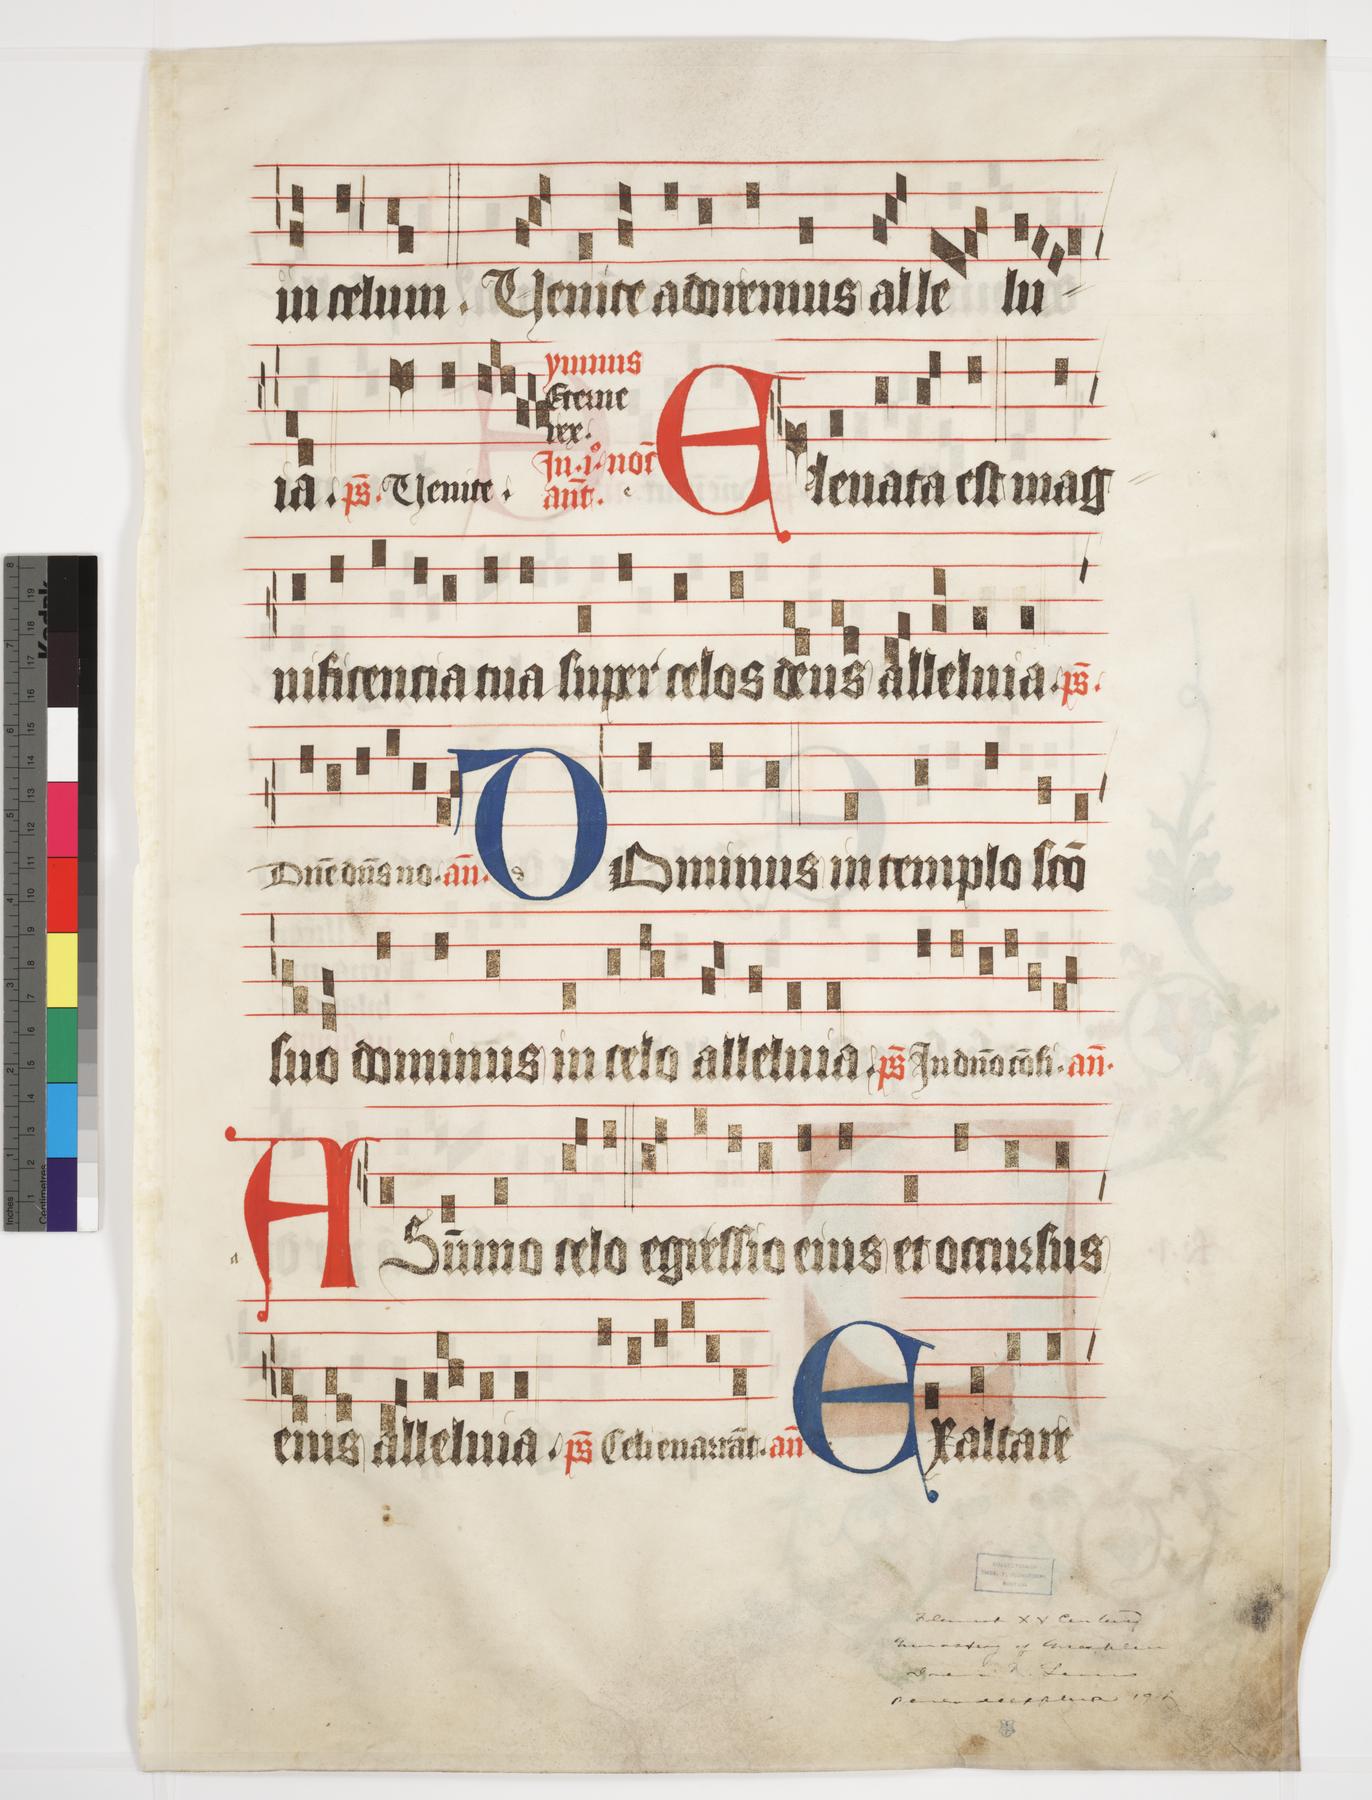 in celum. Uenite adoremus alle lu
ymnus
Eterne
rex.
In .i. noct
ant.
ia. ps. Uenite.
Eleuata est mag
nificencia tua super celos deus alleluia. ps.
Dne dns no. an. Dominus in templo sco
suo dominus in celo alleluia. ps In dno cofi. an.
A Sumo celo egressio eius et occursus
eius alleluia. ps Celi enarrat. an Exaltare
XV Century
Monastery of
Kodak
Inches
Centimetres